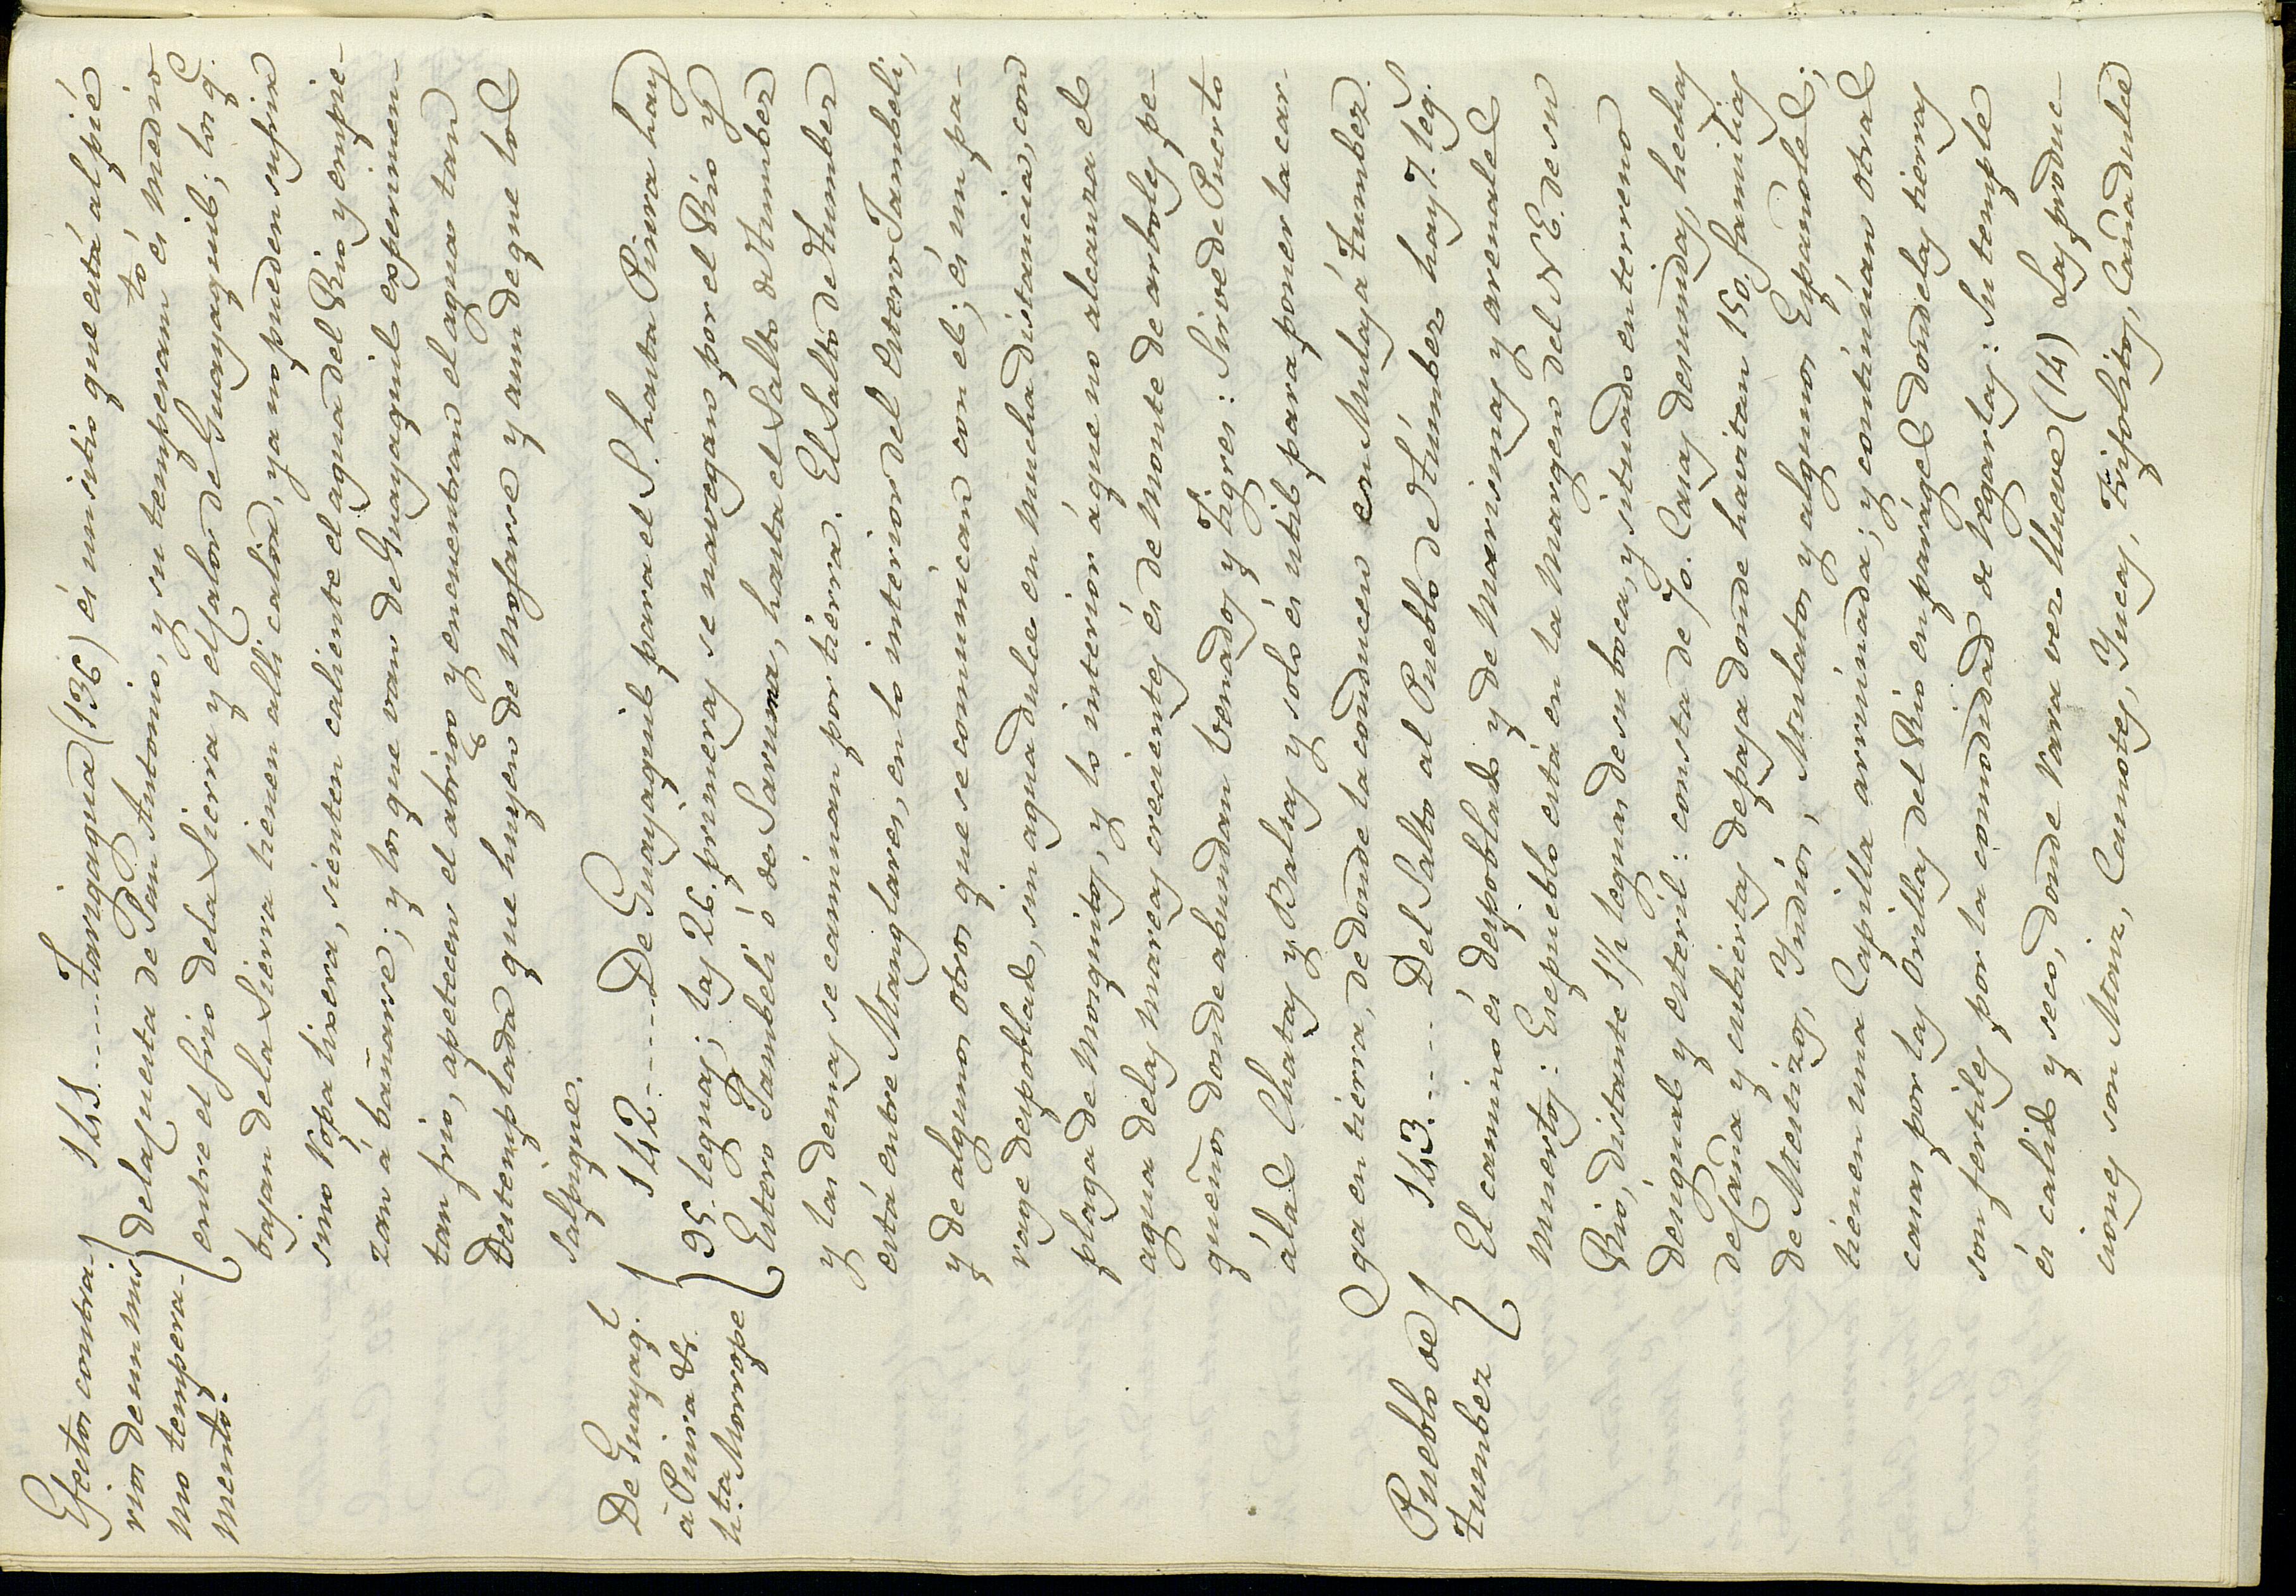 Efectos contra-
rios de un mis-
mo tempera-
mento.
141.....Tarigagua (136) és un sitio que está al pié
de la Cuesta de San Antonio, y su temperam.to és medio
entre el frio de la Sierra y el Calor de Guayaquil; los q.e
bajan de la Sierra tienen alli calor, ya no pueden sufrir
sino ropa lixera, sienten caliente el agua del Rio y empie-
zan á bañarse; y los que van de Guayaquil experimen-
tan frio, apetecen el abrigo y encuentran el agua tan
Destemplada que huyen de mofarse y aun de que los
salpique.
De Guayaq.l
á Piura &.
h.ta Morrope
142.....De Guayaquil para el S. hasta Piura hay
95. leguas; las 26. primeras se navegan por el Rio y
Estero Jambelí ó de Saruma, hasta el Salto de Tumbez
y las demas se caminan por tierra. El Salto de Tumbez
está entre Manglares, en lo interior del Estero Jambelí,
y de algunos otros que se comunican con el; és un pa-
rage despoblado, sin agua dulce en mucha distancia, con
plaga de Mosquitos, y lo interior á que no alcanza el
agua de las mareas crecientes és de Monte de arboles pe-
queños donde abundan benados y Tigres: Sirve de Puerto
á las Chatas y Balsas y solo és util para poner la car-
ga en tierra, de donde la conducen en Mulas á Tumbez.
Pueblo de
Tumbez
143..... Del Salto al Pueblo de Túmbez hay 7. leg.s
El camino és despoblado y de Marismas y arenales
muertos: Ese pueblo está en la Margen del N E. de su
Rio, distante 1 1/2 leguas de su boca, y situado en terreno
desigual y esteril: consta de 70. Casas desunidas, hechas
de Caña y cubiertas de paja donde havitan 150. familias
de Mestizos, Indios, Mulatos y algunos Españoles;
tienen una Capilla arruinada; y continúan otras
casas por las orillas del Rio en paráges donde las tierras
son fertiles por la comodidad de regarlas: Su temple
és calido y seco, donde rara vez llueve (14) Las produc-
ciones son Maiz, Camotes, Yucas, Frisolitos, Caña dulce